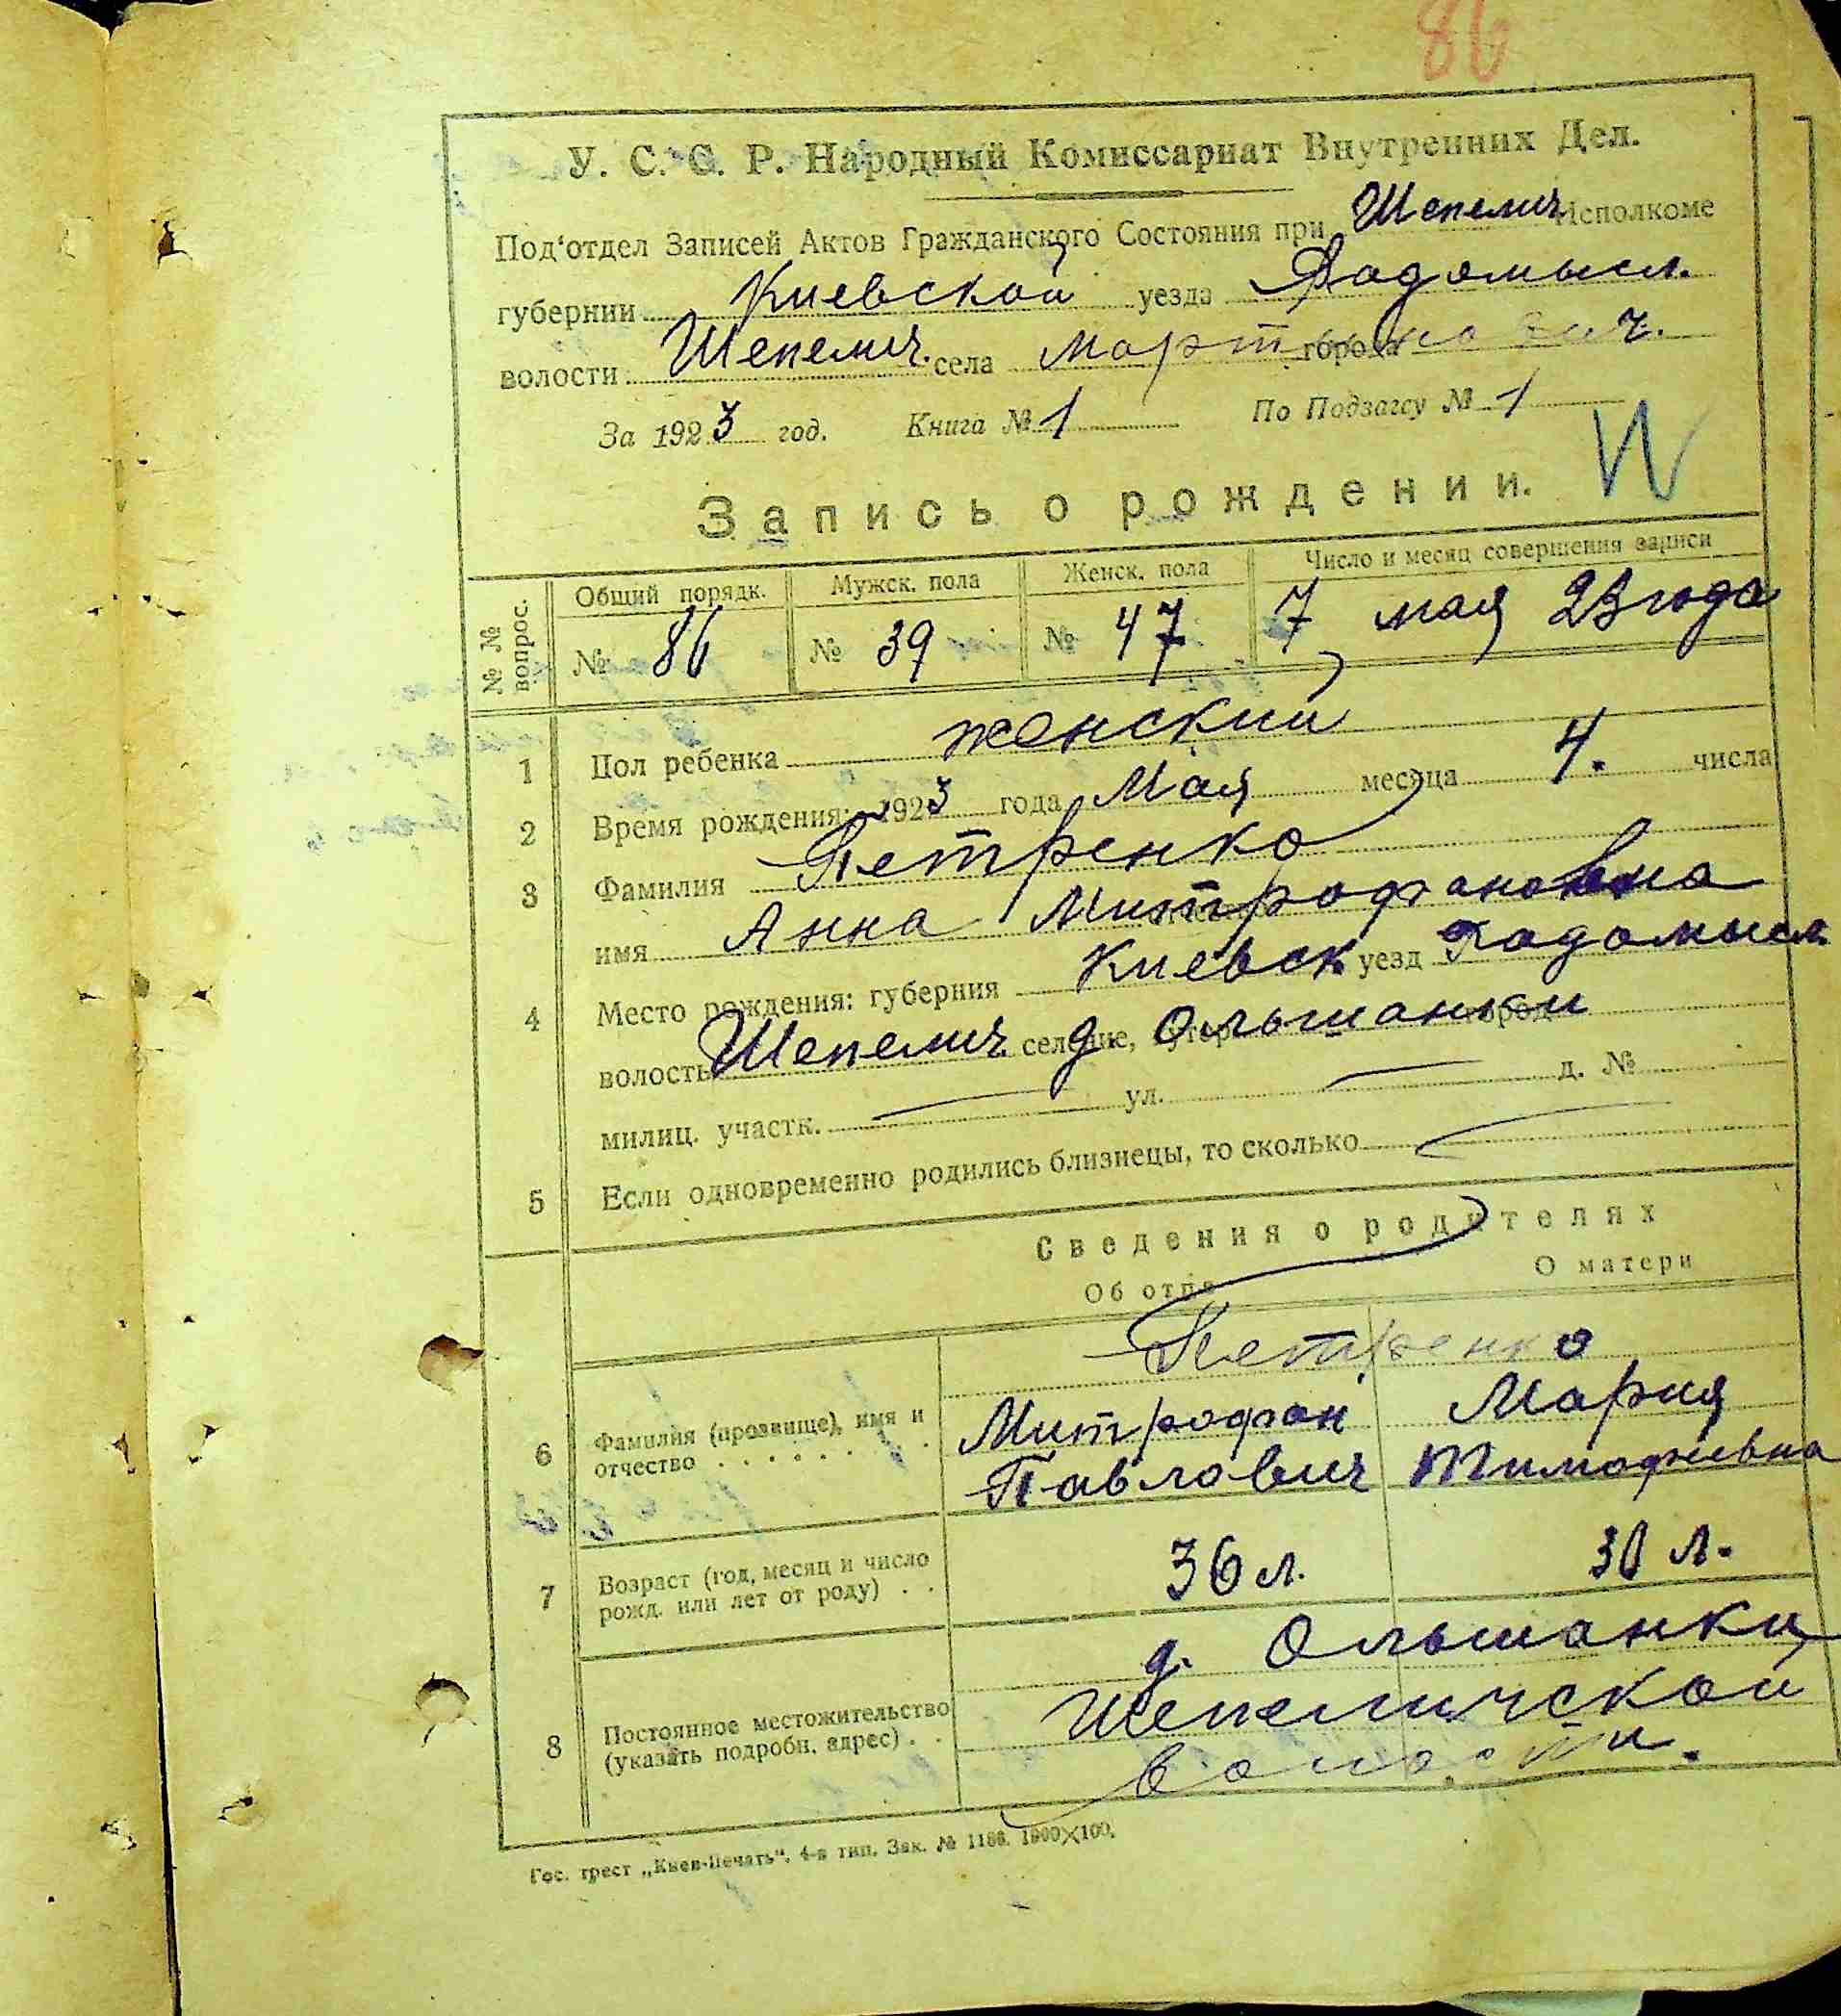 86
У. С. С. Р. Народный Комиссариат Внутренних Дел.
Под'отдел Записей Актов Гражданского Состояния при Шепелич. Исполкоме
губернии Киевской уезда Радомысл.
волости Шепелич. села Мартынович. города
За 1923 год. Книга № 1 По Подзагсу № 1
Запись о рождении.
№ № вопрос. Общий порядк. Мужск. пола Женск. пола Число и месяц совершения записи
№ 86 № 39 № 47 7 мая 23 года
1 Пол ребенка женский
2 Время рождения: 1923 года Мая месяца 4. числа
3 Фамилия Петренко
имя Анна Митрофановна
4 Место рождения: губерния Киевск. уезд Радомысл.
волость Шепелич. селение, хутор д. Ольшанки город
милиц. участк. — ул. — д. №
5 Если одновременно родились близнецы, то сколько —
Сведения о родителях
Об отце О матери
Петренко
6 Фамилия (прозвище), имя и отчество . . . . . . . Митрофан Павлович Мария Тимофиевна
7 Возраст (год, месяц и число рожд. или лет от роду) . . 36 л. 30 л.
8 Постоянное местожительство (указать подробн. адрес) . . д. Ольшанки
Шепеличской
волости.
Гос. трест „Киев-Печать". 4-я тип. Зак. № 1186. 1900×100.